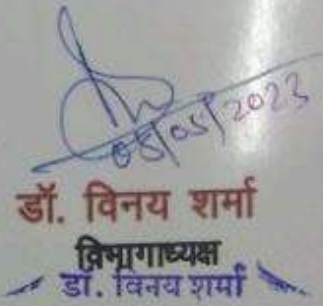 08/05/2023
डॉ. विनय शर्मा
विभागाध्यक्ष
डॉ. विनय शर्मा